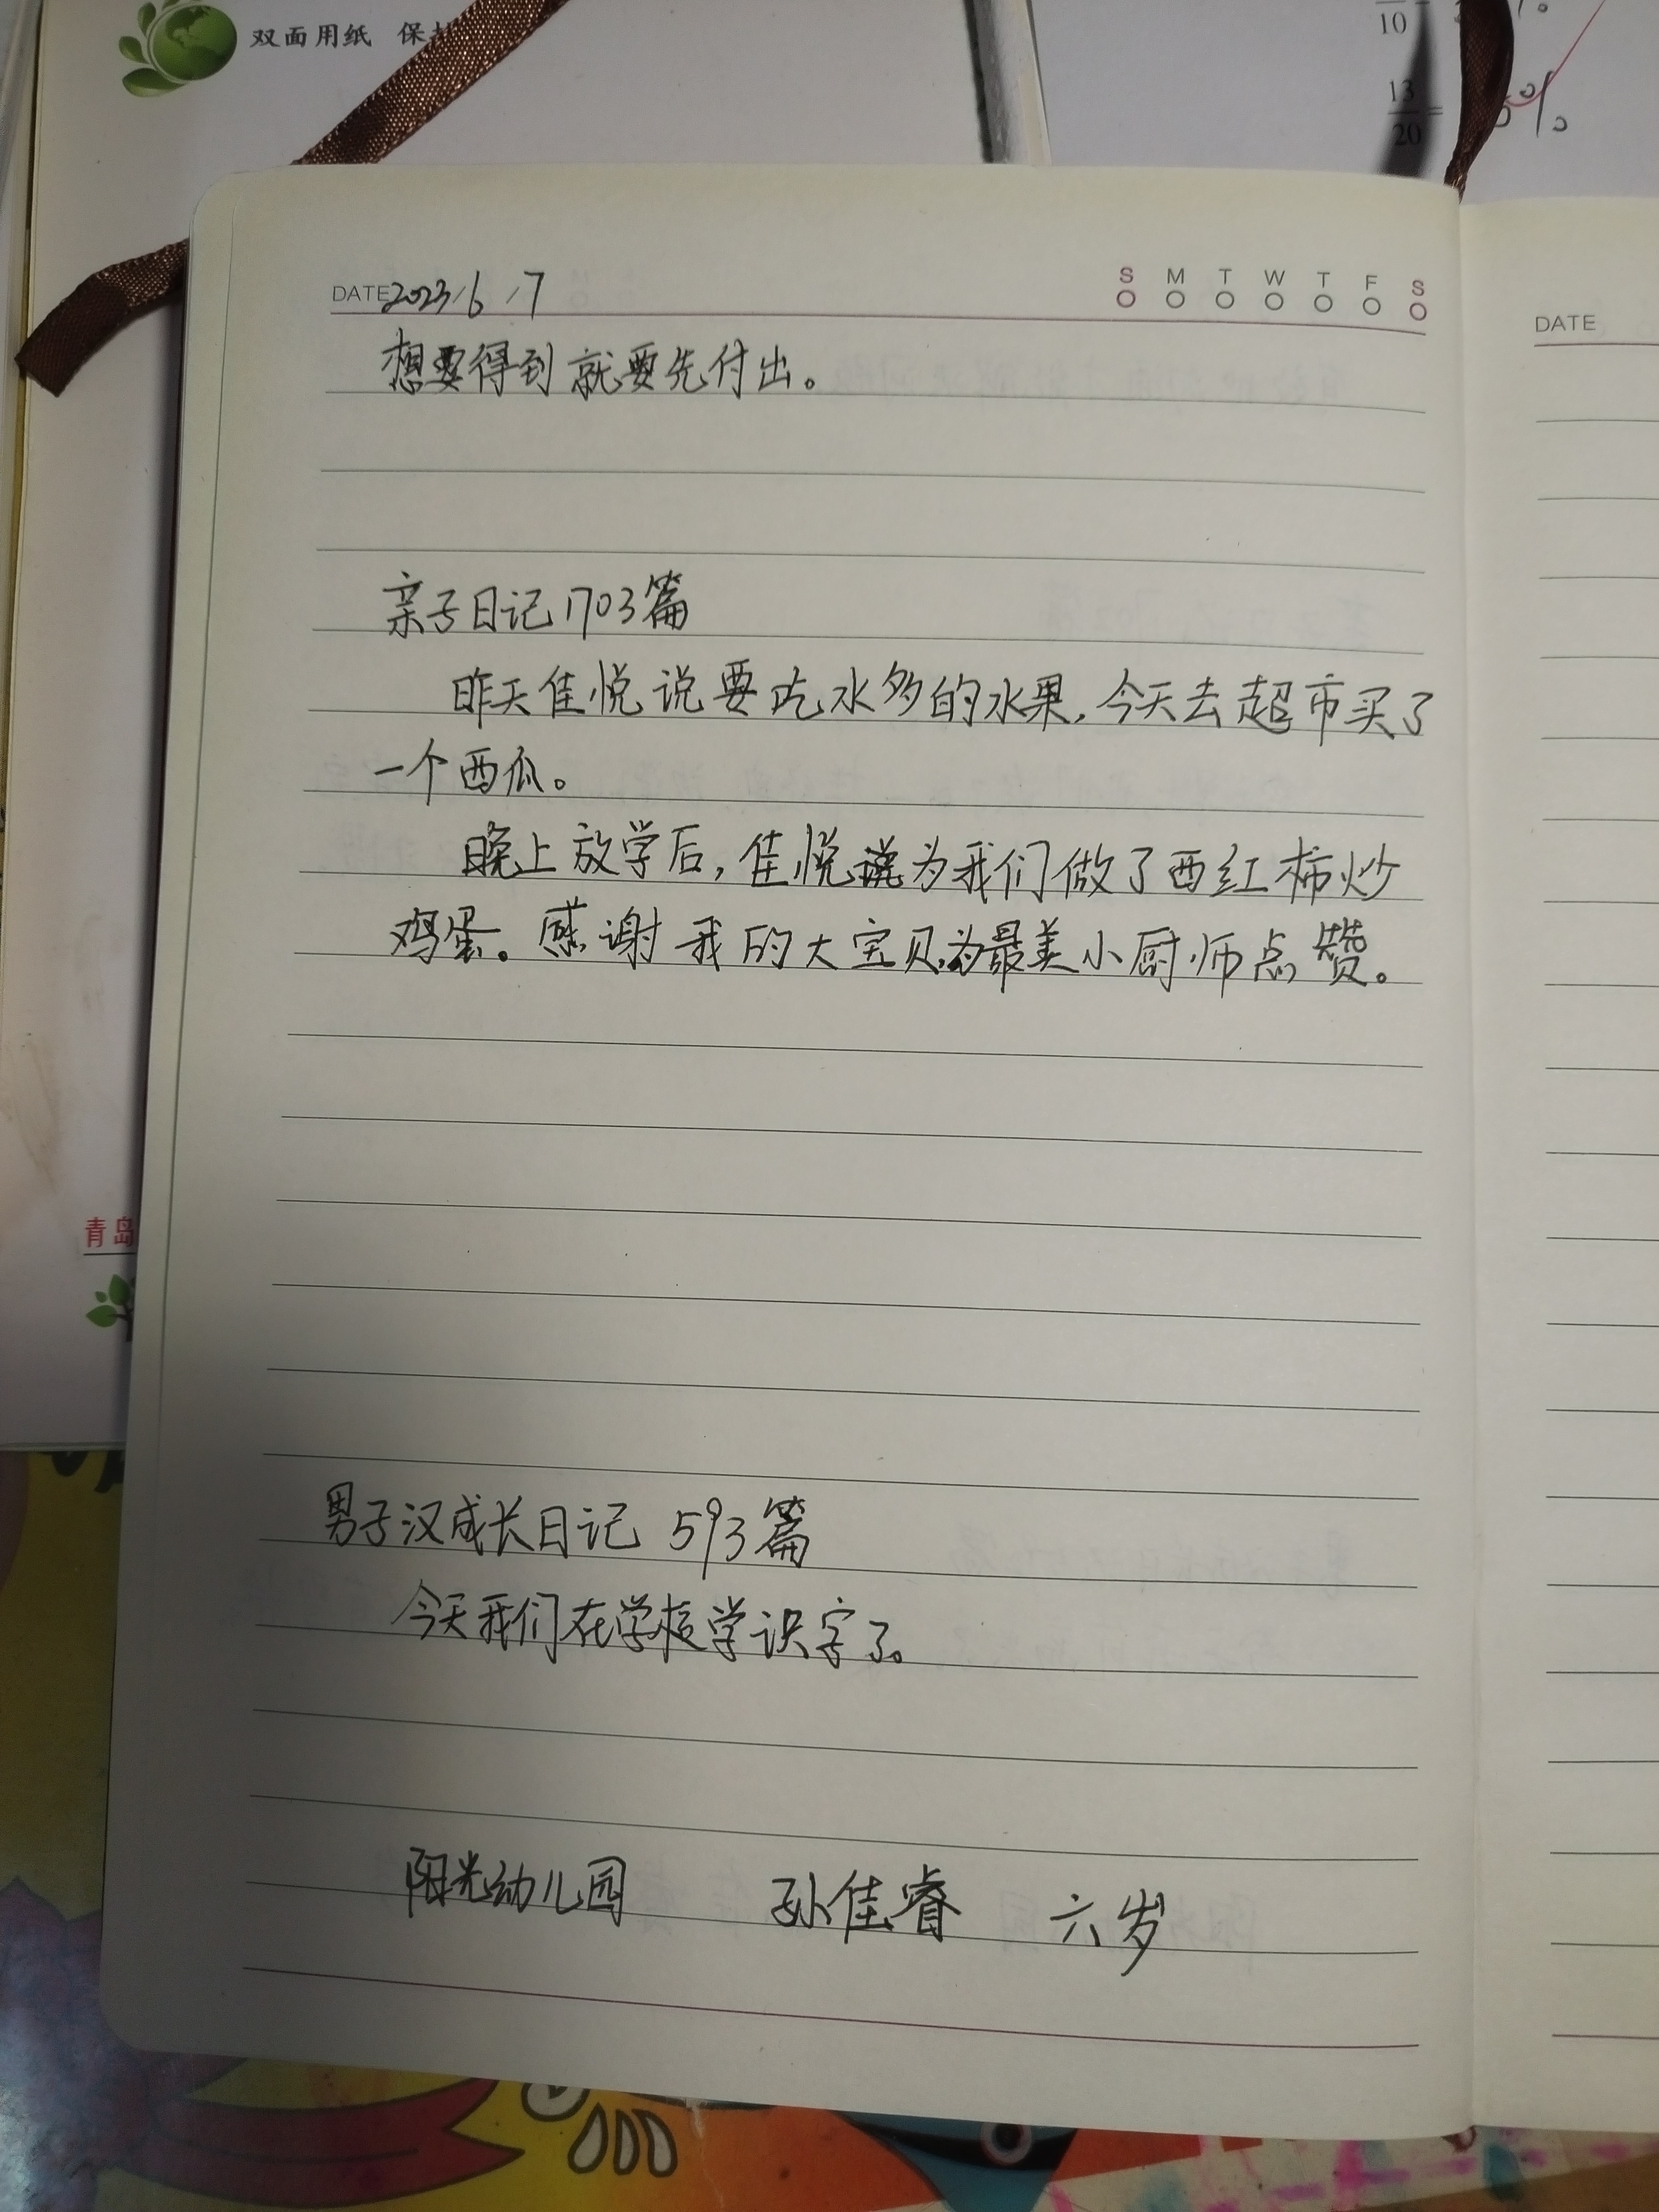 双面用纸 保
10
13
20
=
DATE 2023/6/7
S M T W T F S
DATE
想要得到就要先付出。
亲子日记1703篇
昨天佳悦说要吃水多的水果,今天去超市买了
一个西瓜。
晚上放学后,佳悦说为我们做了西红柿炒
鸡蛋。感谢我的大宝贝,为最美小厨师点赞。
青岛
男子汉成长日记 593篇
今天我们在学校学识字了。
阳光幼儿园 孙佳睿 六岁